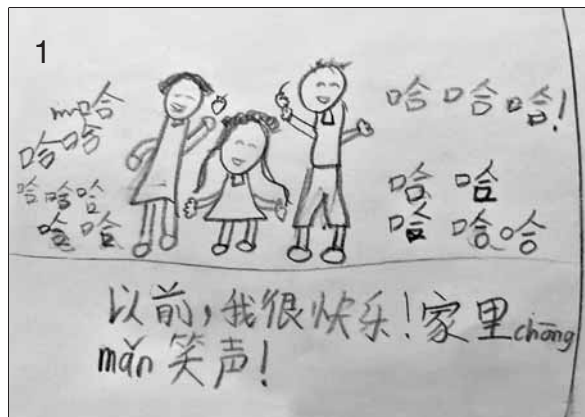 1
哈
哈哈
哈哈哈
哈哈
哈哈哈!
哈哈
哈哈哈
以前,我很快乐!家里chōng
mǎn笑声!